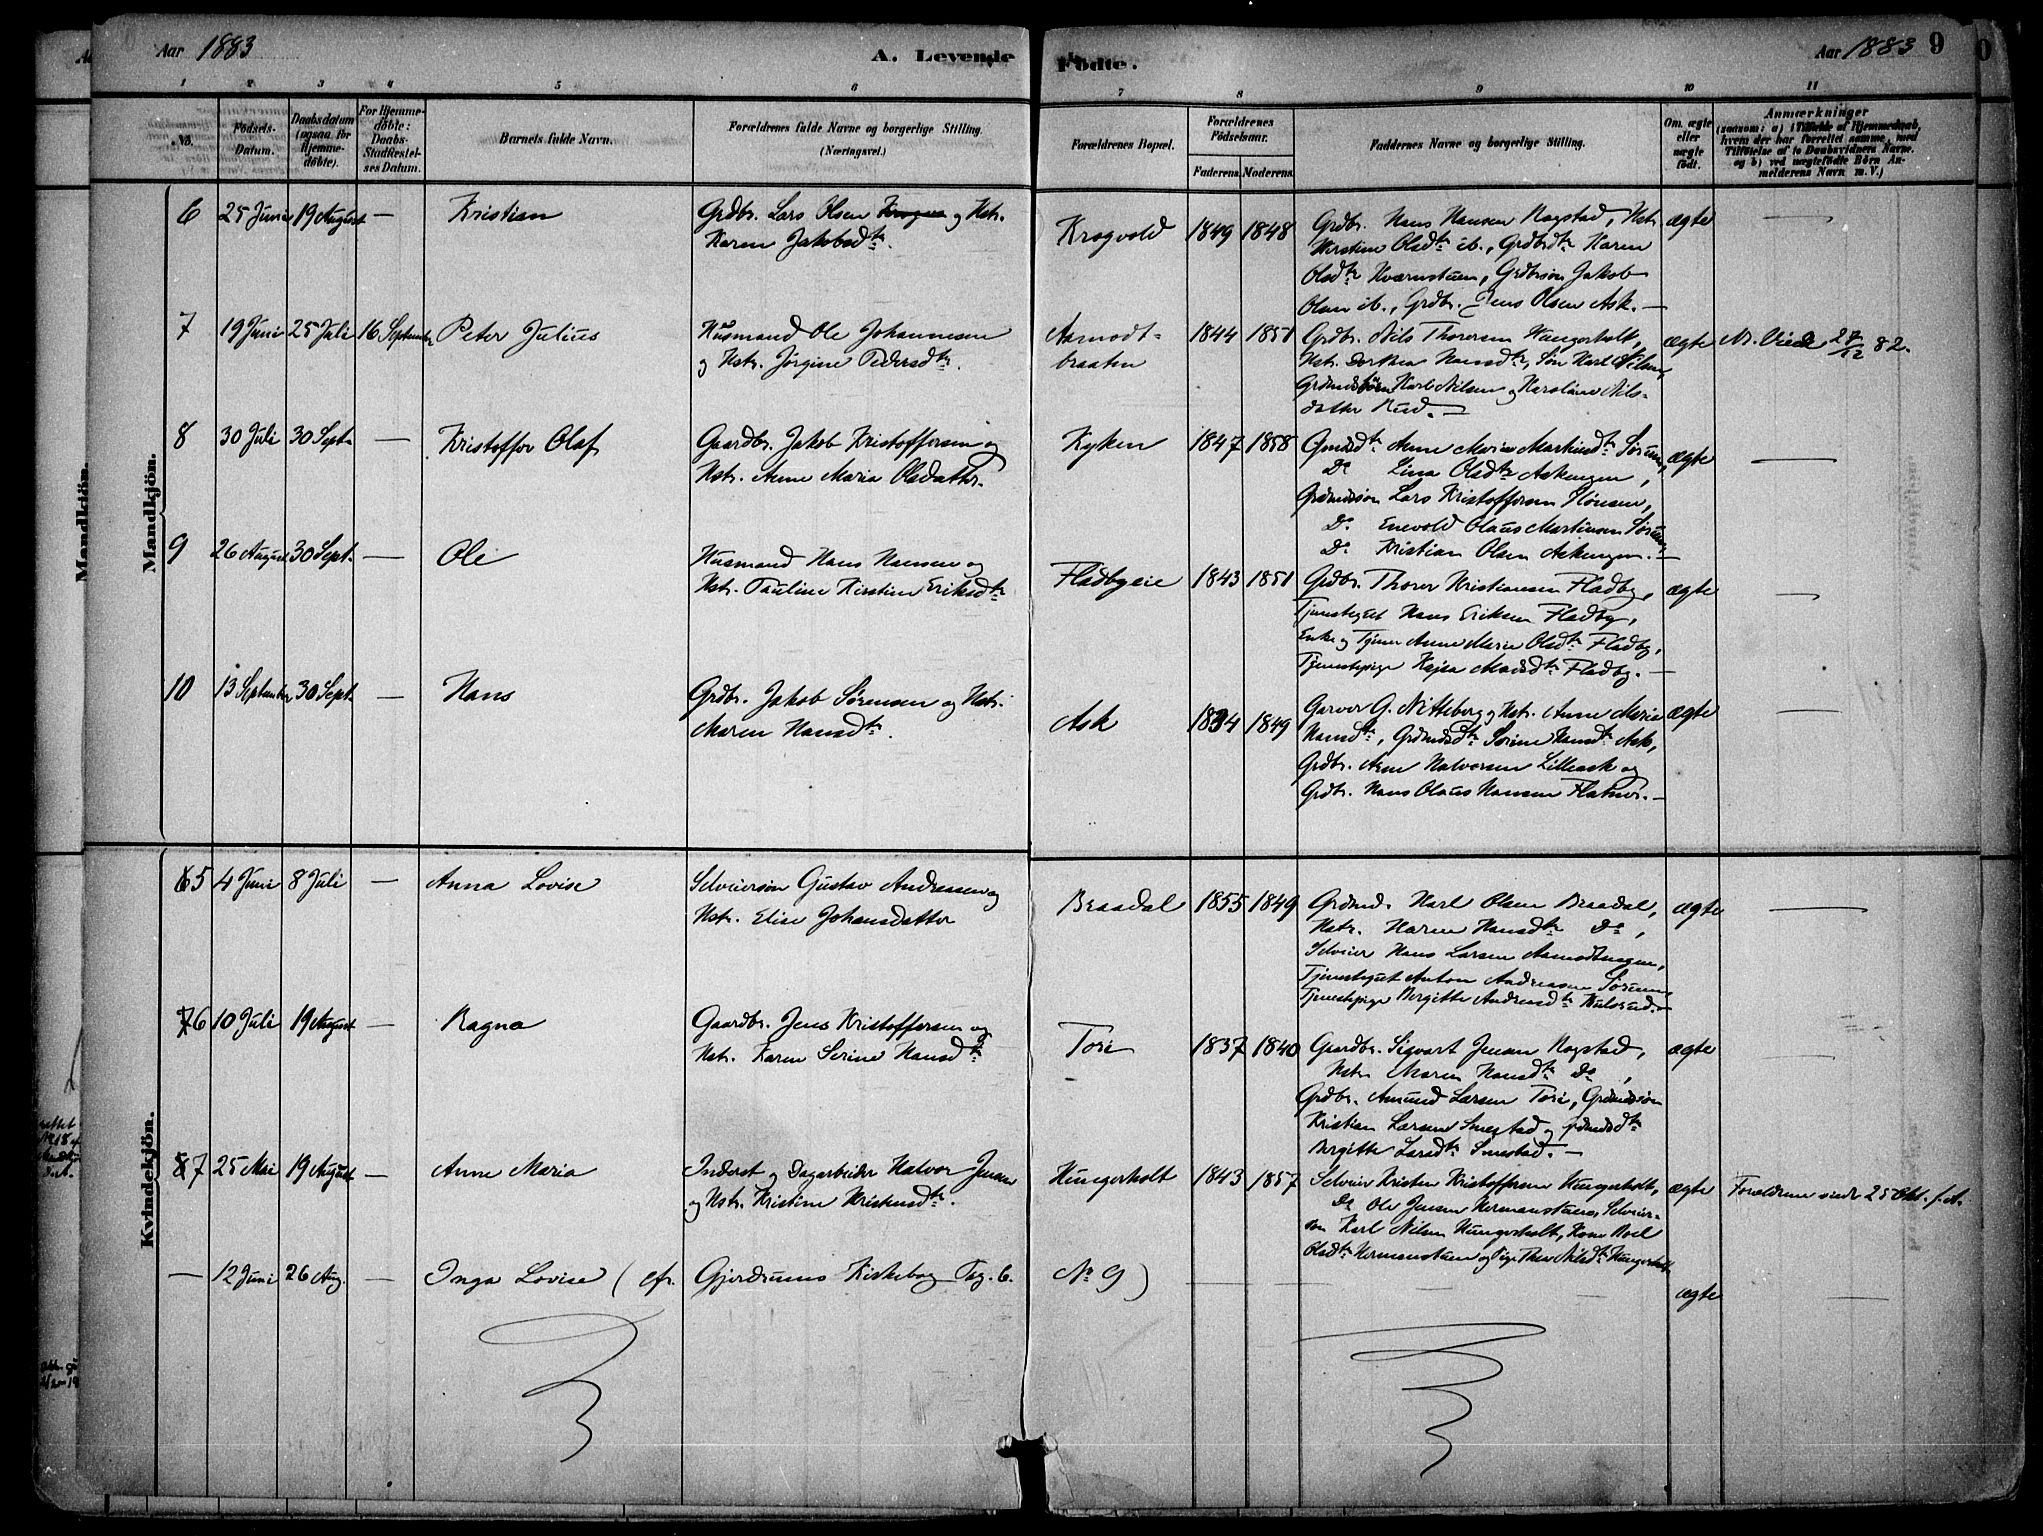 Aar 1883
A. Levende Födte.
Aar 1883 9
1 2 3 4 5 6 7 8 9 10 11
No.
Födsels-Datum.
Daabsdatum (ogsaa for Hjemme-döbte).
For Hjemme-döbte: Daabs-Stadfæstel-ses Datum.
Barnets fulde Navn.
Forældrenes fulde Navne og borgerlige Stilling. (Næringsvei.)
Forældrenes Bopæl.
Forældrenes Födselsaar.
Faderens. Moderens.
Faddernes Navne og borgerlige Stilling.
Om ægte eller uægte födt.
Anmærkninger
(saasom: a) i Tilfælde af Hjemmedaab, hvem der har forrettet samme, med Tilföielse af to Daabsvidners Navne, og b) ved uægtefödte Börn Anmelderens Navn m. V.)
Mandkjön.
6 25 Juni 19 August — Kristian
Grdbr. Lars Olsen Krogvo og Hstr.
Karen Jakobsdtr.
Krogvold 1849 1848
Grdbr. Hans Hansen Ragstad, Hstr.
Kirstine Olsdtr ib., Grdbrdtr Karen
Olsdtr Kværnstuen, Grdbrsøn Jakob
Olsen ib., Grdbr. Jens Olsen Ask. —
ægte —
7 19 Juni 25 Juli 16 September Peter Julius
Husmand Ole Johannesen
og Hstr. Jørgine Pedersdtr.
Aamodt-
braaten
1844 1851
Grdbr. Nils Thoresen Hungerholt,
Hstr. Dorthea Hansdtr, Søn Karl Nilsen,
Karl Nilsen og Karoline Nils-
datter Rud. —
ægte 27/12 82.
8 30 Juli 30 Sept. — Kristoffer Olaf
Gaardbr. Jakob Kristoffersen og
Hstr. Anne Maria Olsdatter.
Kyken 1847 1858
Gmdsdtr Anne Marie Martinsdtr Sørum,
Do Lina Olsdtr Askengen,
Grdmdssøn Lars Kristoffersen
Do Enevold Olaus Martinsen Sørum,
Do Kristian Olsen Askengen. —
ægte —
9 26 August 30 Sept. — Ole
Husmand Hans Hansen og
Hstr. Pauline Kirstine Eriksdtr
Fladbyeie 1843 1851
Grdbr. Thorer Kristiansen Fladby,
Tjenestegut Hans Eriksen Fladby,
Enke og Tjener Anne Marie Olsdtr Fladby,
Tjenestepige Kajsa Madsdtr Fladby. —
ægte —
10 13 September 30 Sept. — Hans
Grdbr. Jakob Sørensen og Hstr.
Maren Hansdtr.
Ask 1834 1849
Garver G. Nitteberg og Hstr. Anne Maria
Hansdtr, Grdmdsdtr Sørine Hansdtr Ask,
Grdbr. Arne Halvorsen Lilleask og
Grdbr. Hans Olaus Hansen Flatner. —
ægte —
Kvindekjön.
5 4 Juni 8 Juli — Anna Lovise
Selveiersøn Gustav Andreassen og
Hstr. Elise Johansdatter
Braadal 1855 1849
Grdmd. Karl Olsen Braadal,
Hstr. Karen Hansdtr Do,
Selveier Hans Larsen Aamodtengen,
Tjenestegut Anton Andreassen Sørum,
Tjenestepige Bergitte Andreasdtr Hulesud.
ægte —
6 10 Juli 19 August — Ragna
Gaardbr. Jens Kristoffersen og
Hstr. Karen Serine Hansdtr
Tori 1837 1840
Gaardbr. Sigvart Jensen Ragstad,
Hstr. Maren Hansdtr Do,
Grdbr. Amund Larsen Tori, Grdmdssøn
Kristian Larsen Smestad og
Bergitte Larsdtr Smestad. —
ægte —
7 25 Mai 19 August — Anne Maria
Inderst og Dagarbeider Halvor Jensen
og Hstr. Kristine Kristensdtr.
Hungerholt 1843 1857
Selveier Kristen Kristoffersen Hungerholt,
Do Ole Jensen Hermanstuen, Selveier-
søn Karl Nilsen Hungerholt, Kone Roel
Olsdtr Hermanstuen og Pige Thea Nilsdtr Hungerholt
ægte Forældrene viede 25 Okt. f. A.
— 12 Juni 26 Aug. — Inga Lovise (cfr. Gjerdrums Kirkebog Pag. 6. No 9)
ægte —